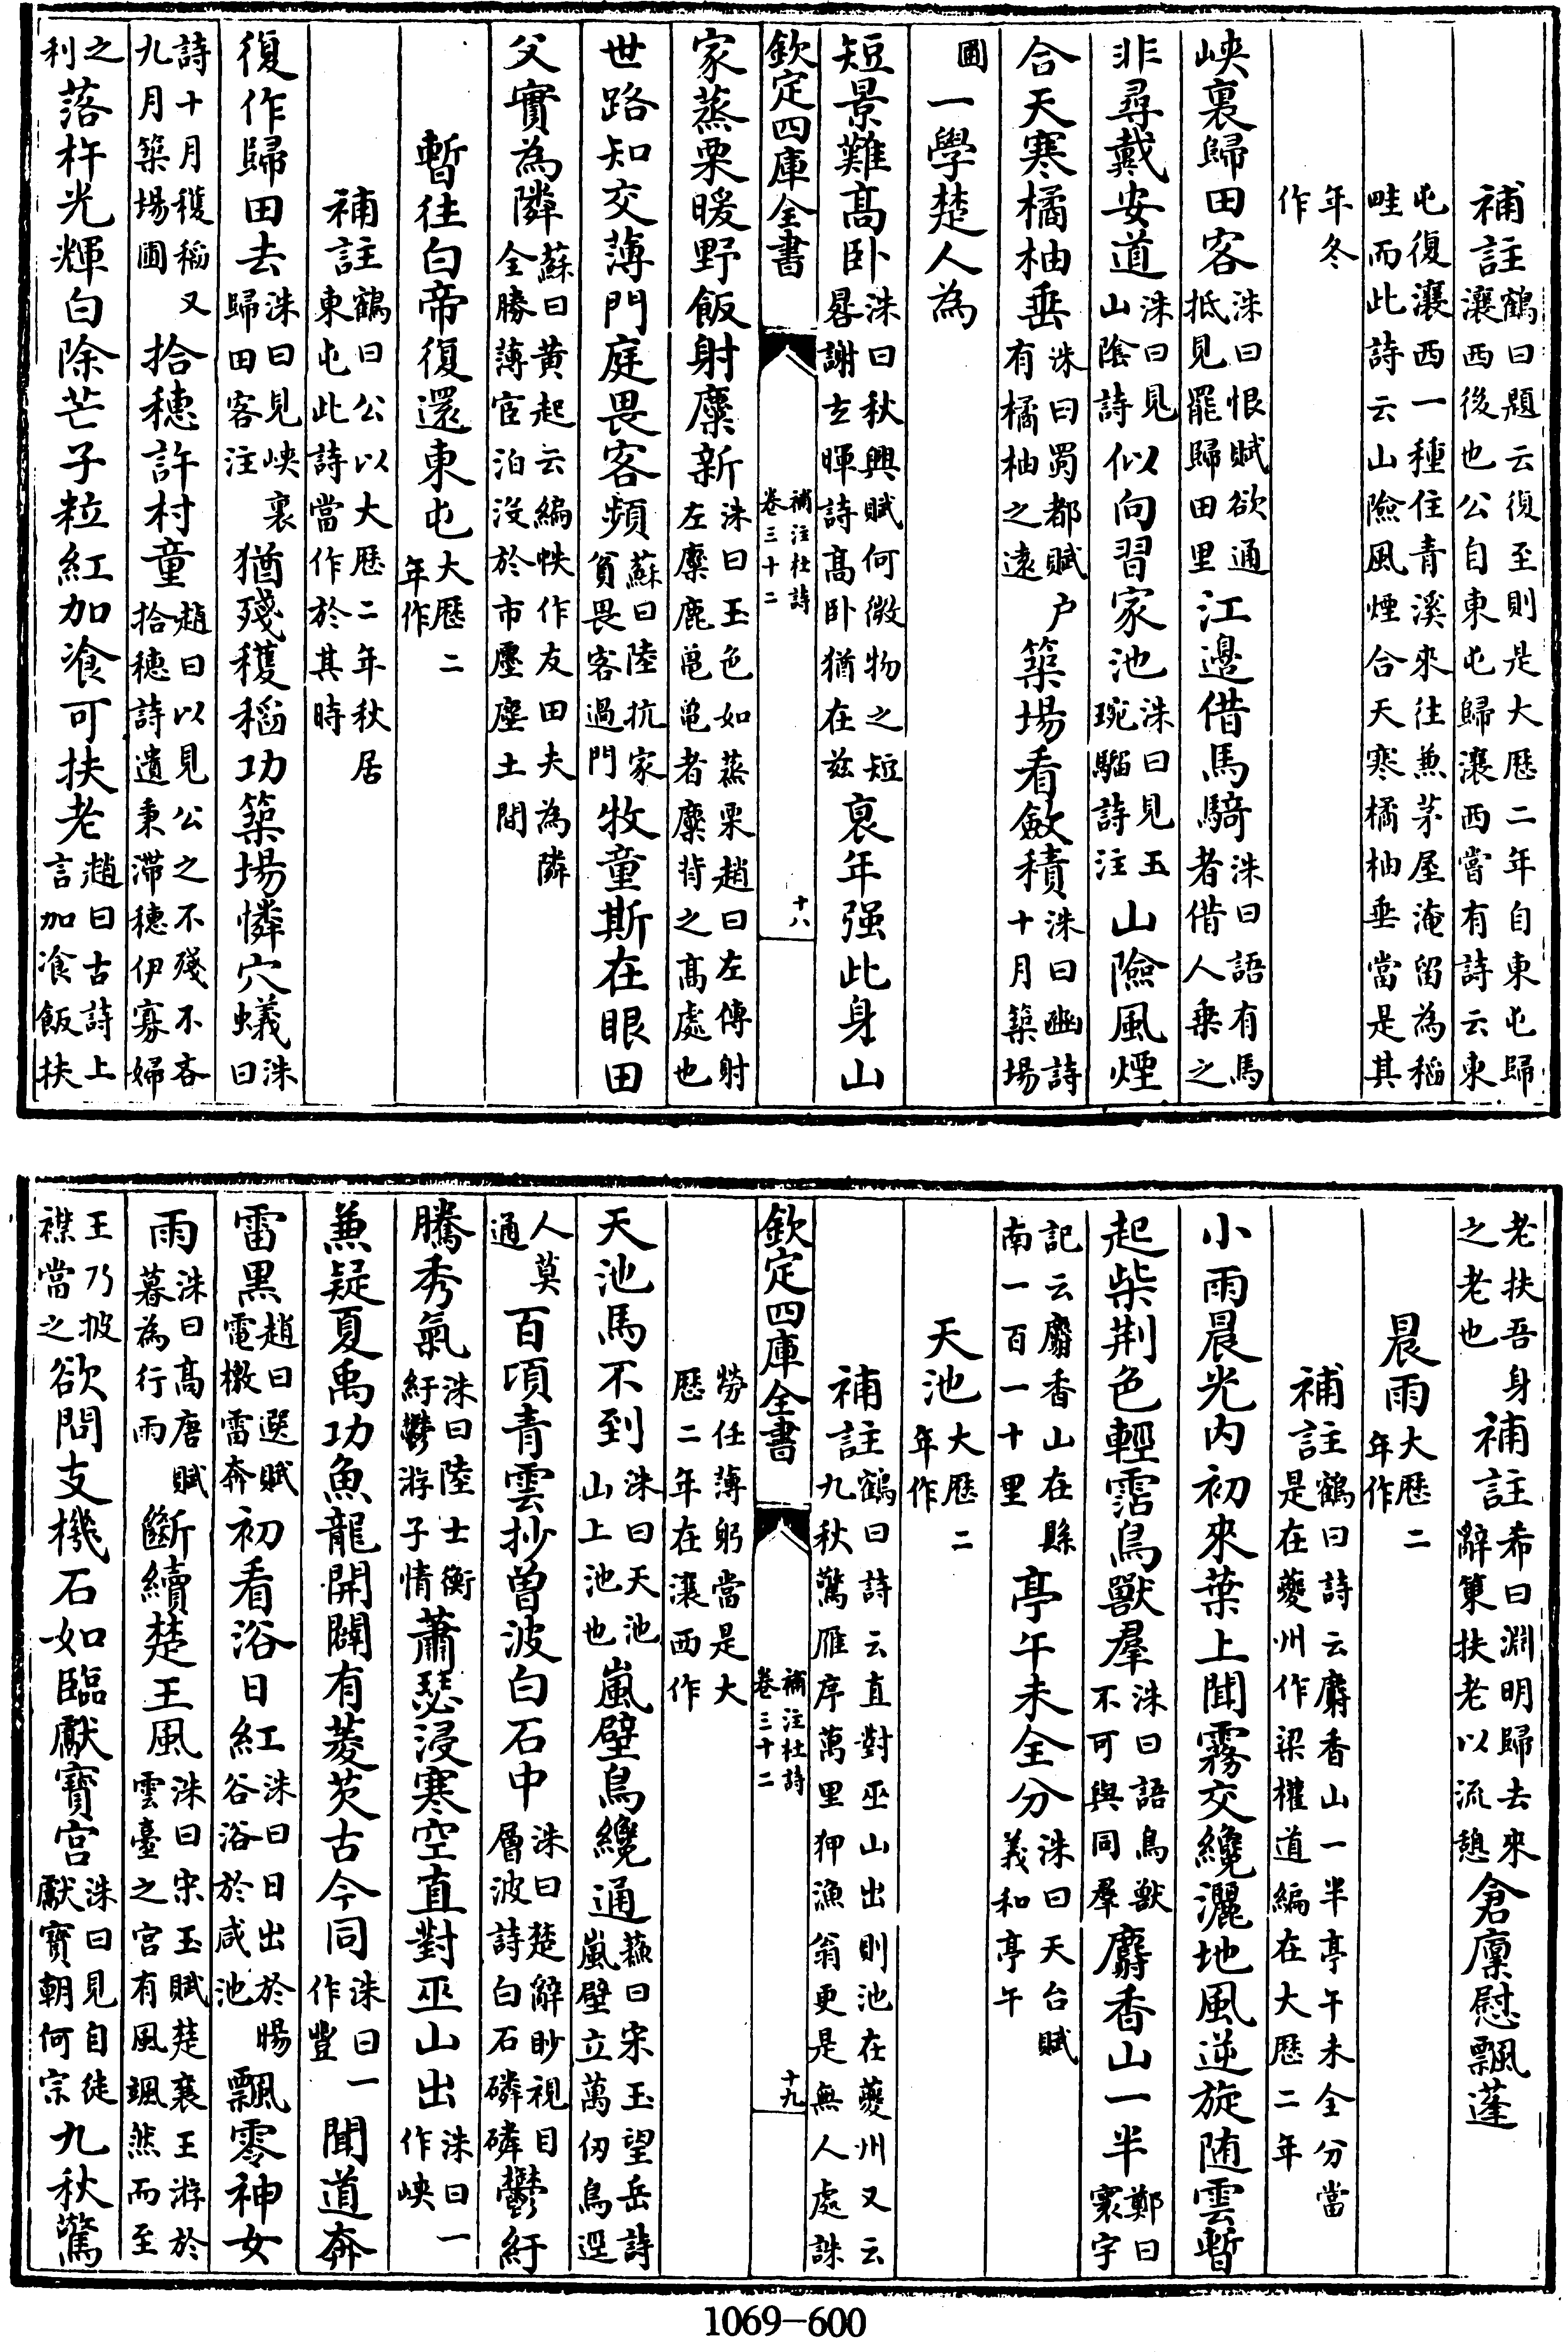 補註鶴曰題云復至則是大歷二年自東屯歸瀼西後也公自東屯歸瀼西嘗有詩云東
屯復瀼西一種住青溪來往兼茅屋淹留為稻畦而此詩云山險風煙合天寒橘柚垂當是其
年冬作
峽裏歸田客洙曰恨賦欲通抵見罷歸田里江邊借馬騎洙曰語有馬者借人乗之
非尋戴安道洙曰見山隂詩似向習家池洙曰見玉琬騮詩注山險風煙
合天寒橘柚垂洙曰蜀都賦户有橘柚之遠築場看斂積洙曰豳詩十月築場
圃一學楚人為
短景難髙卧洙曰秋興賦何微物之短晷謝玄暉詩髙卧猶在兹衰年强此身山
欽定四庫全書 補注杜詩卷三十二 十八
家蒸栗暖野飯射麋新洙曰玉色如蒸栗趙曰左傳射左麋鹿黽黽者麋背之髙處也
世路知交薄門庭畏客頻蘇曰陸抗家貧畏客過門牧童斯在眼田
父實為隣蘇曰黄起云編帙作友田夫為隣全勝薄宦泊沒於市廛塵土間
暫往白帝復還東屯大歷二年作
補註鶴曰公以大歷二年秋居東屯此詩當作於其時
復作歸田去洙曰見峽裏歸田客注猶殘穫稻功築場憐穴蟻洙曰
詩十月穫稻又九月築場圃拾穂許村童趙曰以見公之不殘不吝拾穂詩遺秉滯穂伊寡婦
之利落杵光輝白除芒子粒紅加飡可扶老趙曰古詩上言加飡飯扶
老扶吾身之老也補註希曰淵明歸去來辭䇿扶老以流憩倉廩慰飄蓬
晨雨大歷二年作
補註鶴曰詩云麝香山一半亭午未全分當是在夔州作梁權道編在大歷二年
小雨晨光内初來葉上聞霧交纔灑地風逆旋随雲暫
起柴荆色輕霑鳥獸羣洙曰語鳥獸不可與同羣麝香山一半鄭曰寰宇
記云麝香山在縣南一百一十里亭午未全分洙曰天台賦義和亭午
天池大歷二年作
補註鶴曰詩云直對巫山出則池在夔州又云九秋驚雁序萬里狎漁翁更是無人處誅
欽定四庫全書 補注杜詩卷三十二 十九
勞任薄躬當是大歷二年在瀼西作
天池馬不到洙曰天池山上池也嵐壁鳥纔通蘇曰宋玉望岳詩嵐壁立萬仞鳥逕
人莫通百頃青雲抄曽波白石中洙曰楚辭眇視目層波詩白石磷磷鬱紆
騰秀氣洙曰陸士衡紆鬱游子情蕭瑟浸寒空直對巫山出洙曰一作峽
兼疑夏禹功魚龍開闢有菱芡古今同洙曰一作豐聞道奔
雷黑趙曰選賦電檄雷奔初看浴日紅洙曰日出於暘谷浴於咸池飄零神女
雨洙曰髙唐賦暮為行雨斷續楚王風洙曰宋玉賦楚襄王游於雲臺之宫有風颯然而至
王乃披襟當之欲問支機石如臨獻寳宫洙曰見自徒獻寳朝何宗九秋驚
1069-600